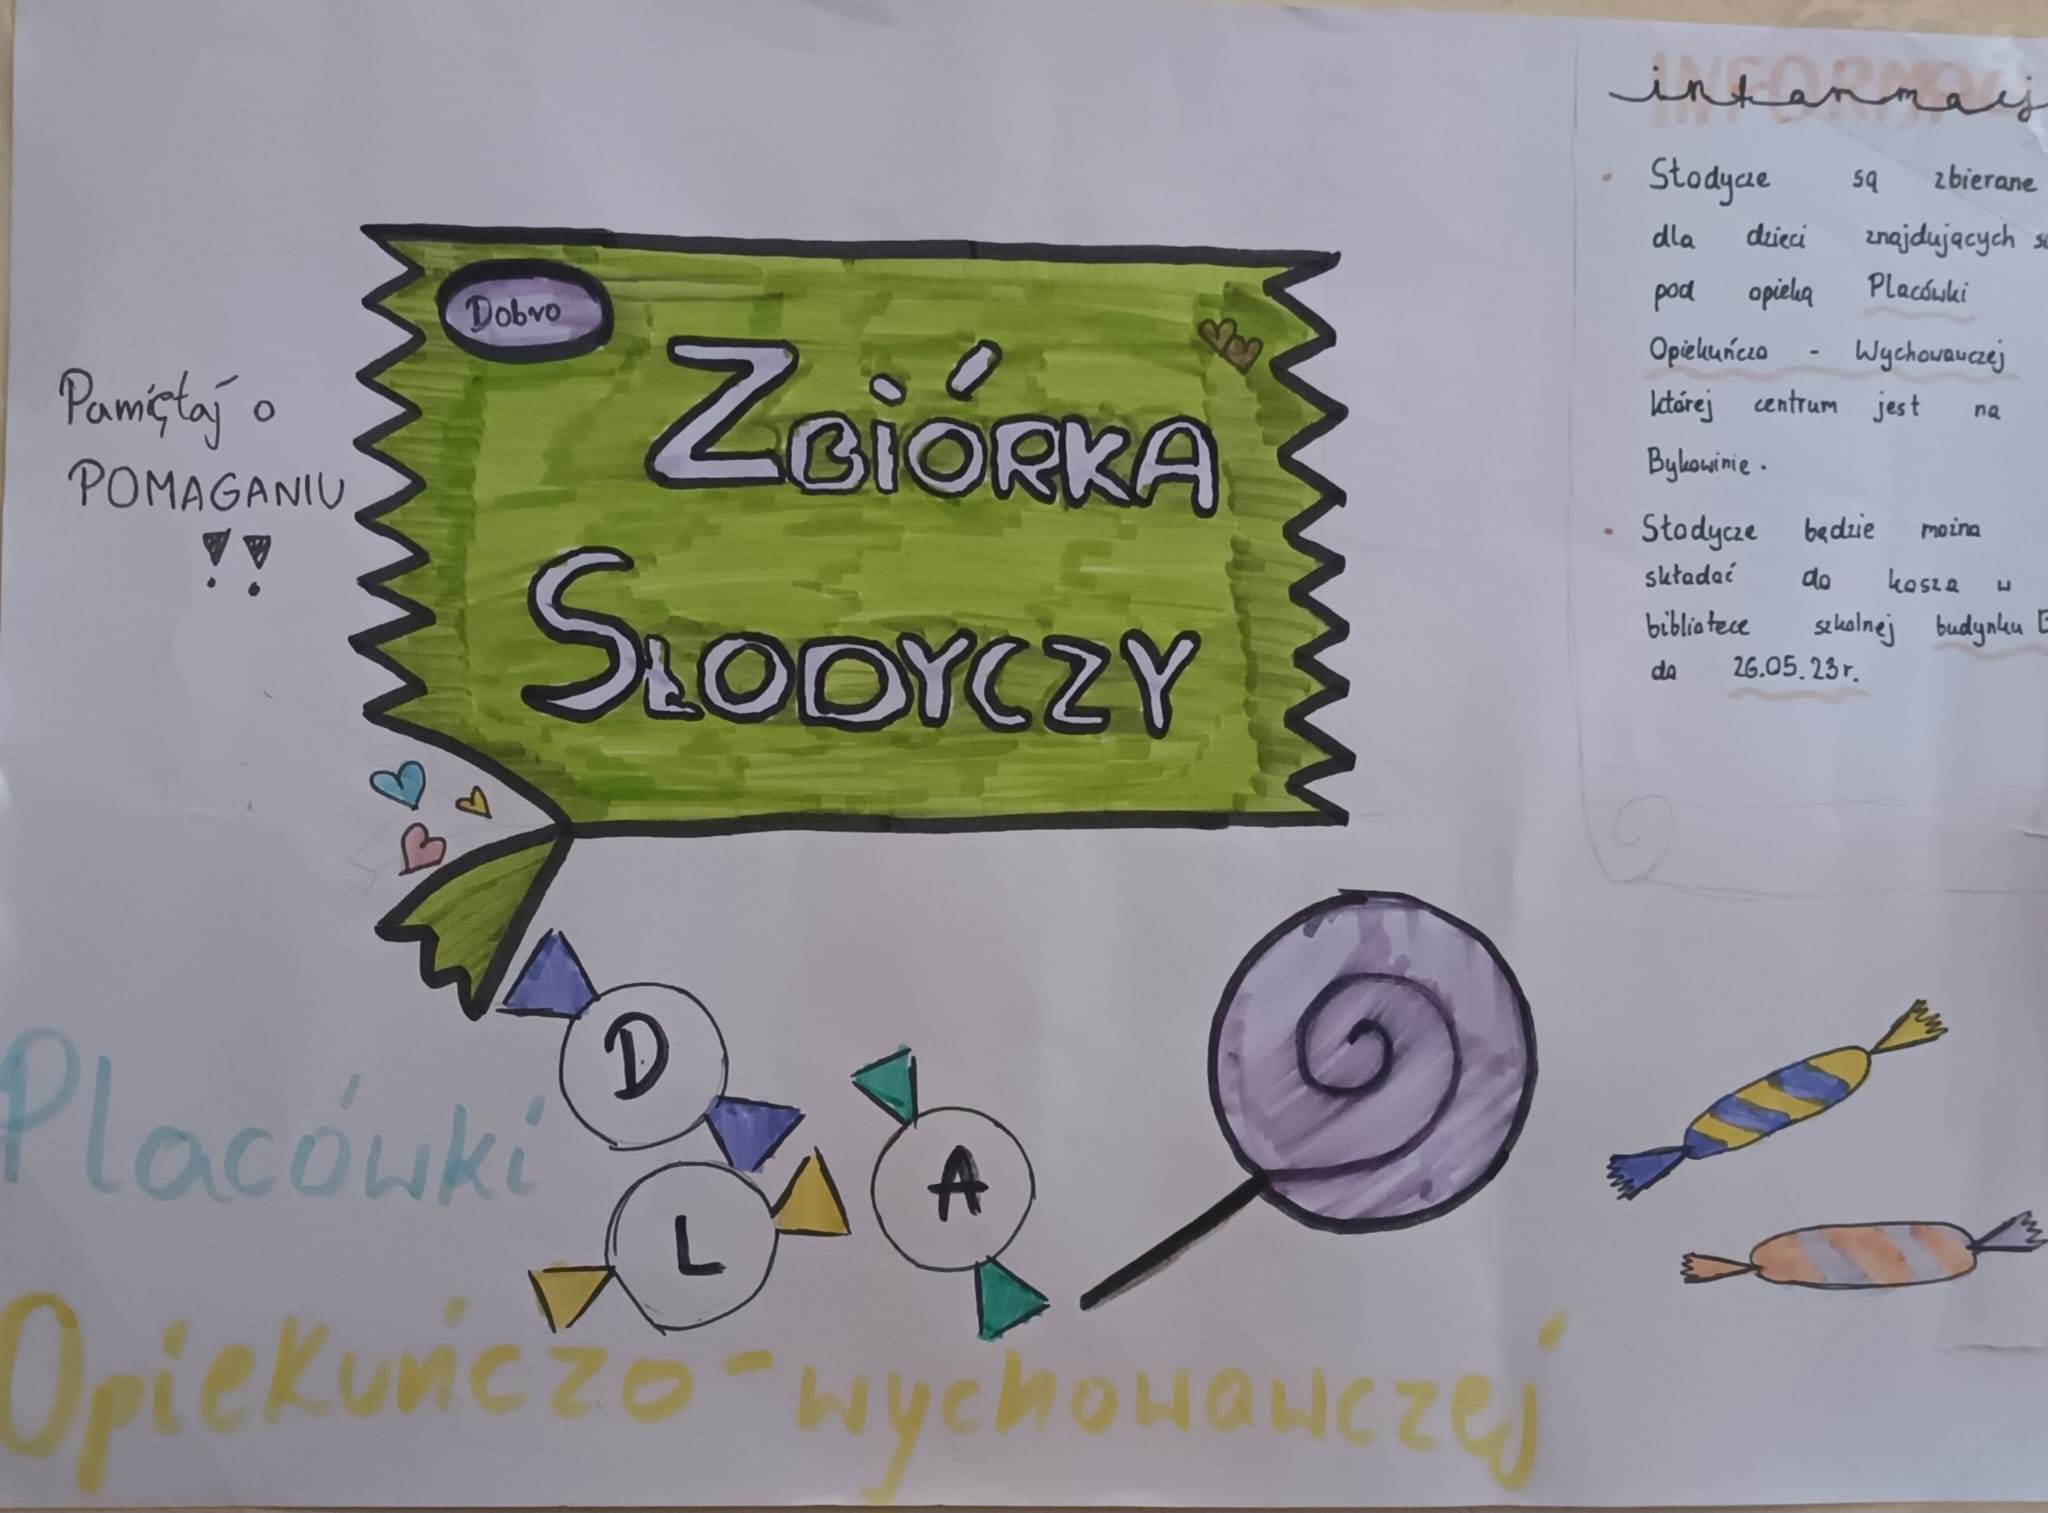 Pamiętaj o
POMAGANIU
!!
Dobro
ZBIÓRKA
SŁODYCZY
DLA
Placówki
Opiekuńczo-wychowawczej
informacj
• Słodycze są zbierane
dla dzieci znajdujących
pod opieką Placówki
Opiekuńczo - Wychowawczej
której centrum jest na
Bykowinie.
• Słodycze będzie można
składać do kosza w
bibliotece szkolnej budynku
do 26.05.23r.